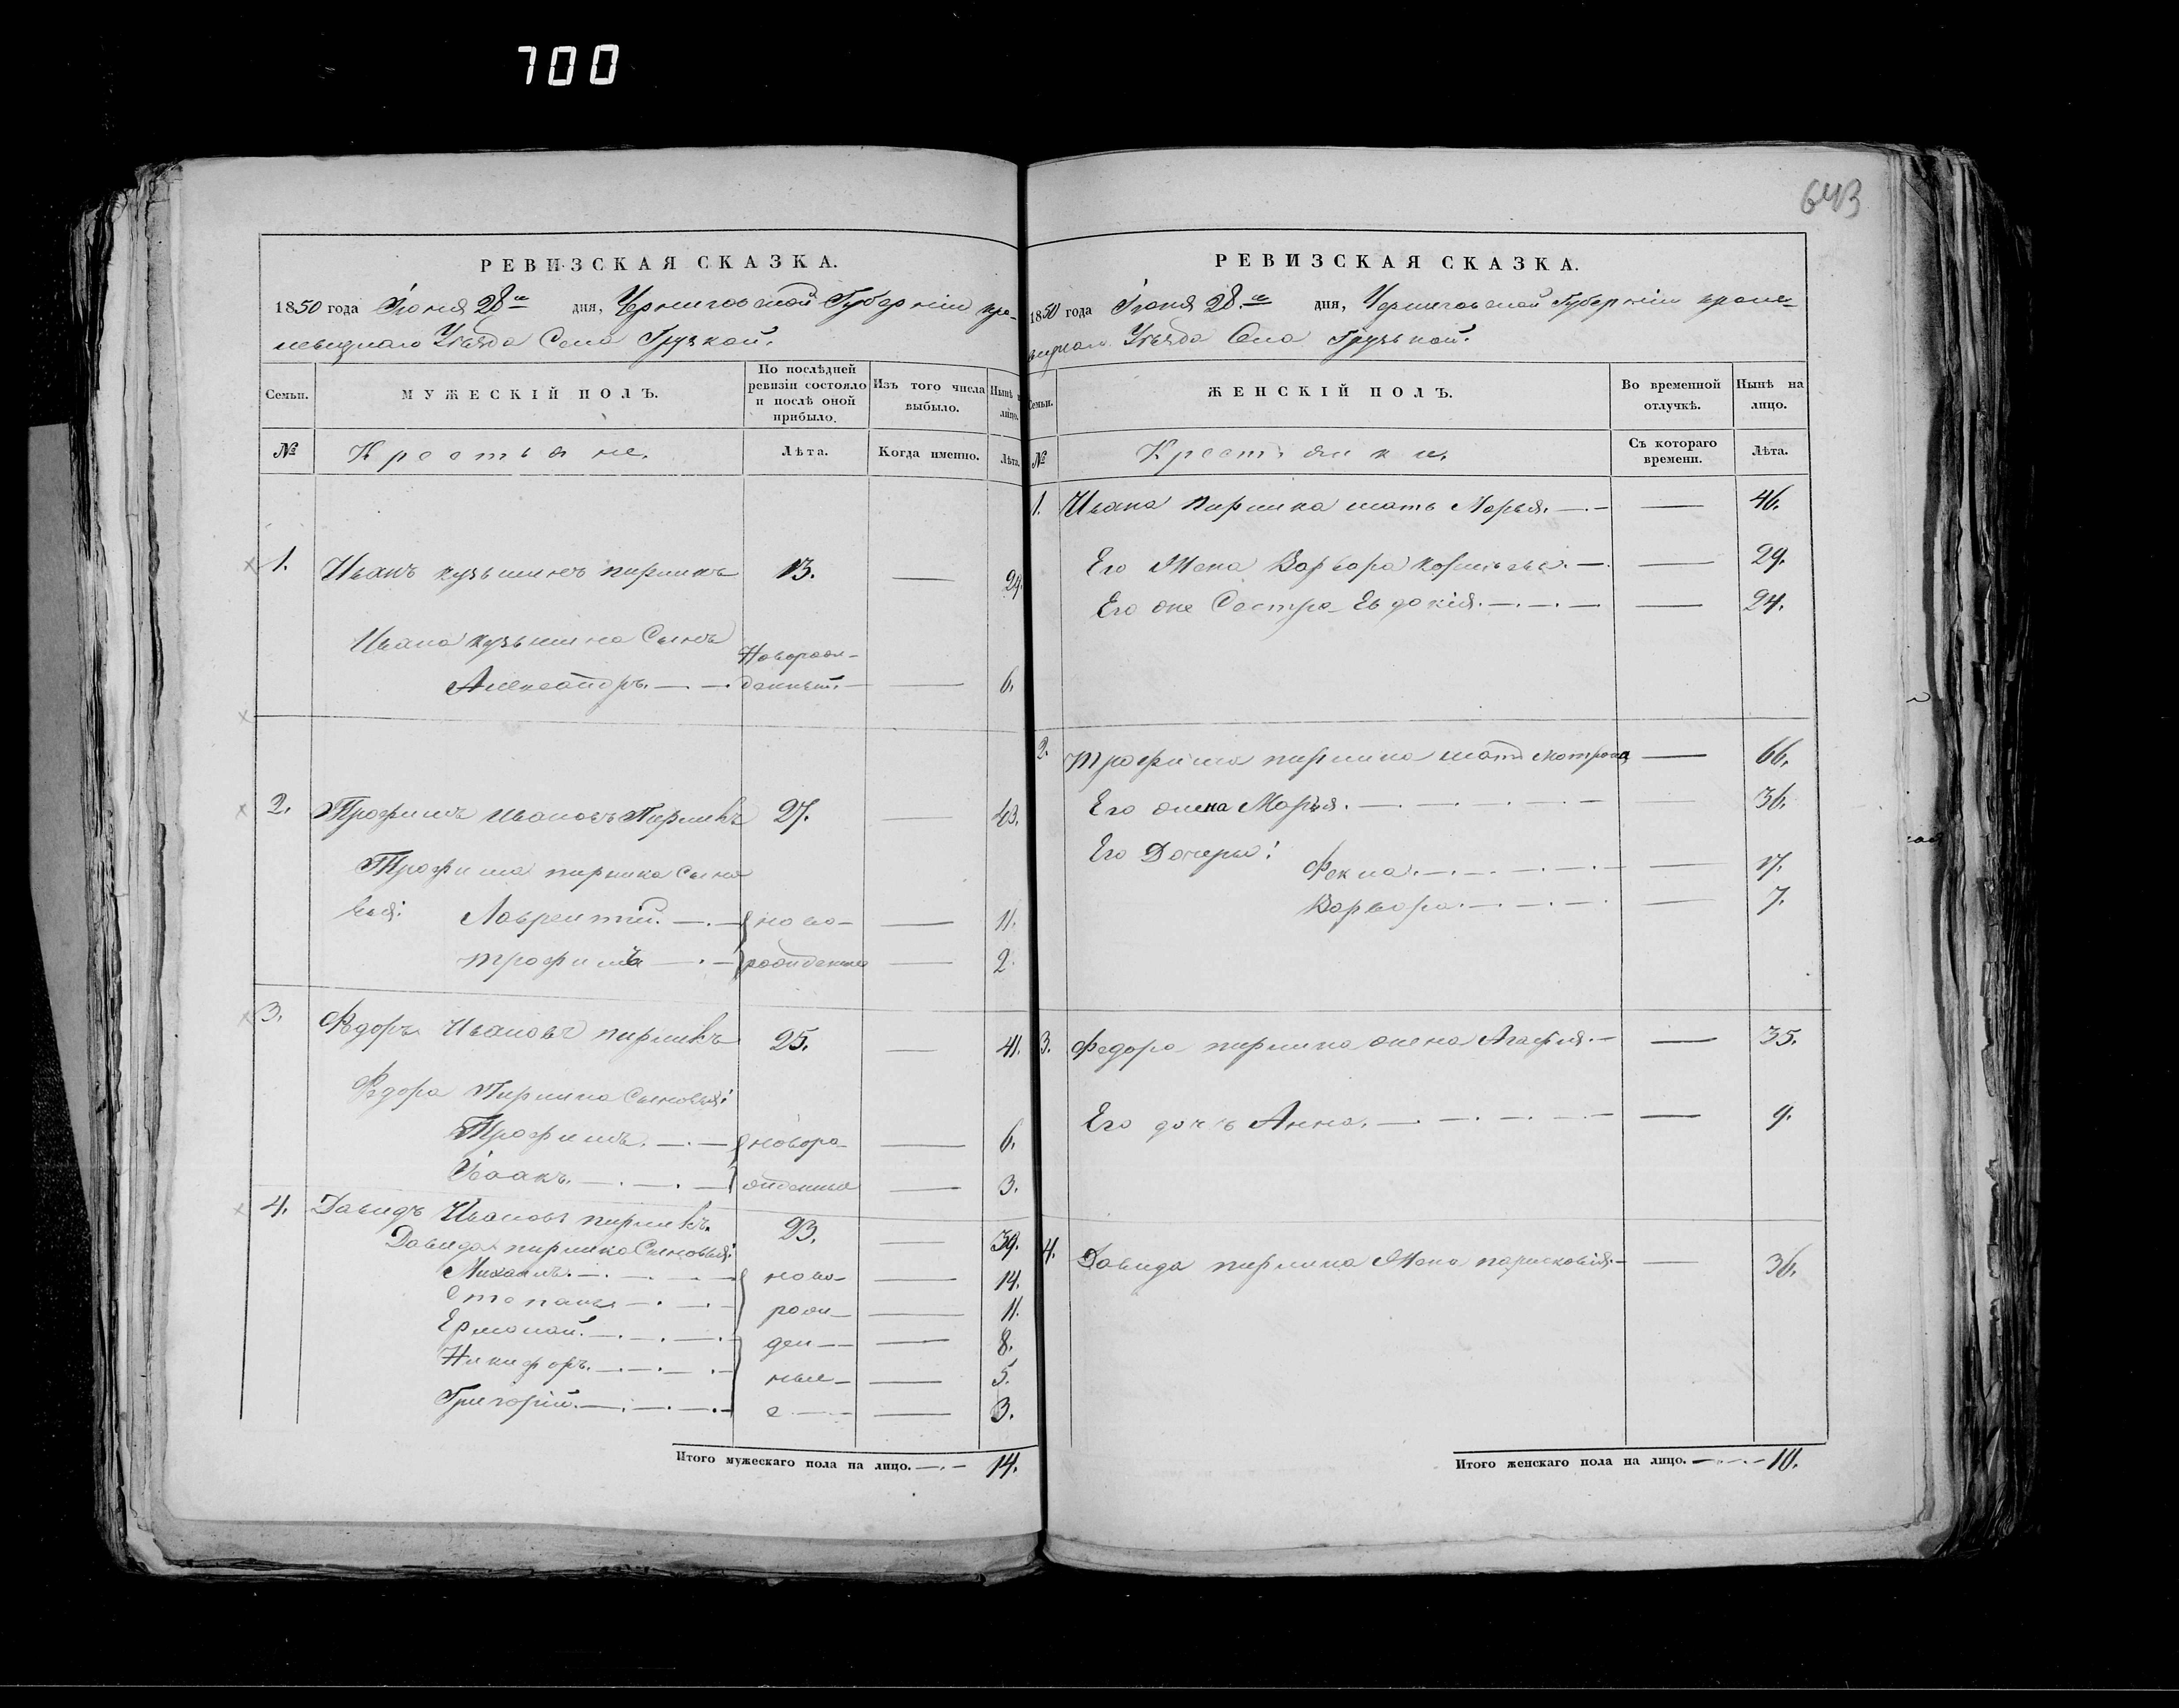 700
643
РЕВИЗСКАЯ СКАЗКА.
1850 года Іюня 28го дня, Черниговской Губерніи кро-
левецкаго Уѣзда Села Грузкой.
Семьи. МУЖЕСКІЙ ПОЛЪ. По послѣдней ревизіи состояло и послѣ оной прибыло. Изъ того числа выбыло. Нынѣ на лицо.
№ Крестьяне. Лѣта. Когда именно. Лѣта.
1. Иванъ Кузьминъ Пирмикъ 13. — 29.
Ивана Кузьмина Сынъ Новорож-
Александръ. — . — денный. — 6.
2. Трофимъ Ивановъ Пирмикъ 27. — 43.
Трофима Пирмика Сыно
вья: Лаврентій. — . — ново- — 11.
Трофимъ — . — рожденные — 2.
3. Ѳедоръ Ивановъ Пирмикъ 25. — 41.
Ѳедора Пирмика Сыновья:
Трофимъ. — . — новоро- — 6.
Исаакъ. — . — . — жденные — 3.
4. Давидъ Ивановъ Пирмикъ. 23. — 39.
Давида Пирмика Сыновья:
Михаилъ. — . — . — ново- — 14.
Степанъ. — . — . — рож- — 11.
Ермолай. — . — . — ден- — 8.
Никифоръ. — . — . — ные- — 5.
Григорій. — . — . — е — 3.
Итого мужескаго пола на лицо. — . — 14.
РЕВИЗСКАЯ СКАЗКА.
1850 года Іюня 28.го дня, Черниговской Губерніи кроле-
вецкаго Уѣзда Села Грузькой.
Семьи. ЖЕНСКІЙ ПОЛЪ. Во временной отлучкѣ. Нынѣ на лицо.
№ Крестьянки. Съ котораго времени. Лѣта.
1. Ивана Пирмика мать Марья. — . — — 46.
Его Жена Варвара — 29.
Его же Сестра Евдокія. — . — . — — 24.
2. Трофима Пирмика мать Мотрона — 66.
Его жена Марья. — . — . — . — 36.
Его Дочери: Фекла. — . — . — . — — 17.
Варвара. — . — . — . — — 7.
3. Федора Пирмика жена Агафья. — — 35.
Его дочь Анна. — . — . — . — — 9.
4. Давида Пирмика Жена Парасковія. — — 36.
Итого женскаго пола на лицо. — . — . — 10.